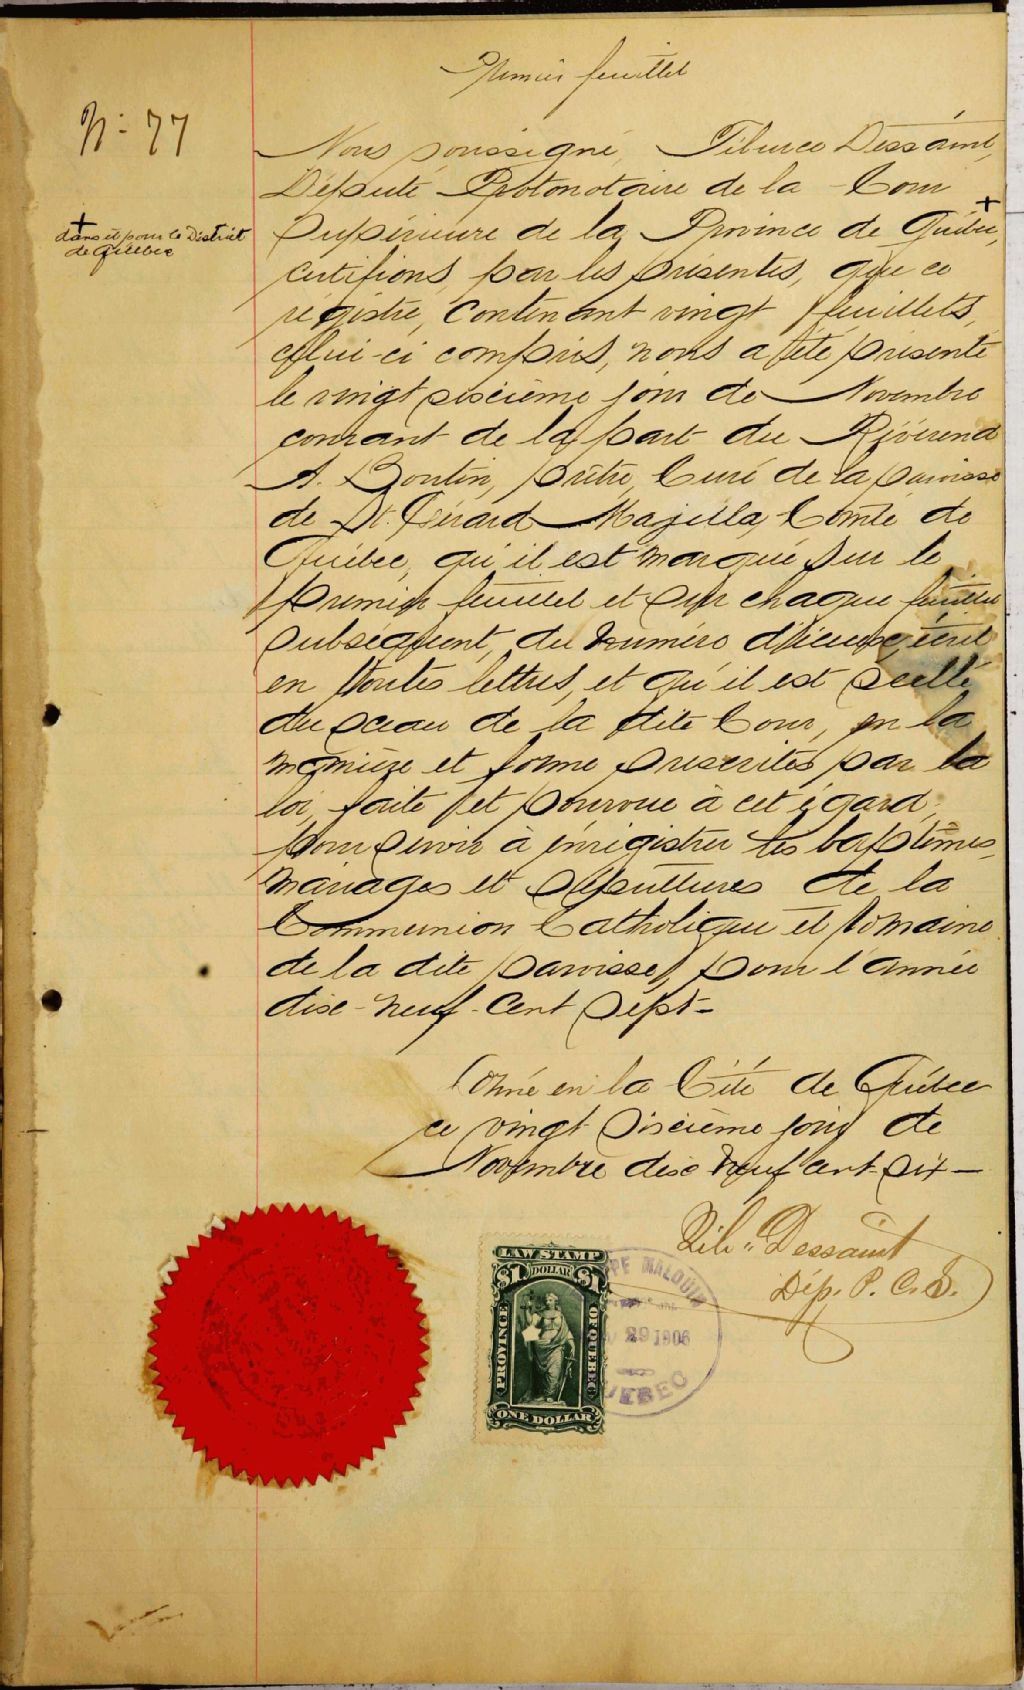 Premier feuillet
N: 77
Nous soussigné, Tiburce Dessaint,
Député Protonotaire de la Cour
+
dans et pour le District
de Québec
Supérieure de la Province de Québec, +
certifions par les présentes, que ce
régistre, contenant vingt feuillets,
celui-ci compris, nous a été présenté
le vingt sixième jour de Novembre
courant de la part du Révérend
A. Boutin, prêtre, Curé de la paroisse
de St. Gérard Majella, Comté de
Québec, qu'il est marqué sur le
premier feuillet et sur chaque feuillet
subséquent, du numéro d'iceux, écrit
en toutes lettres, et qu'il est scellé
du sceau de la dite Cour, en la
manière et forme prescrites par la
loi, faite et pourvue à cet égard,
pour servir à énrégistrer les baptêmes,
mariages et sépultures de la
Communion Catholique et Romaine
de la dite paroisse, pour l'année
dix-neuf-cent sept-
Donné en la Cité de Québec
ce vingt sixième jour de
Novembre dix neuf cent-six-
Tib. Dessaint
Dép. P. C. S.
LAW STAMP
$1 DOLLAR $1
PROVINCE OF QUEBEC
ONE DOLLAR
PE MALOUIN
29 1906
UEBEC